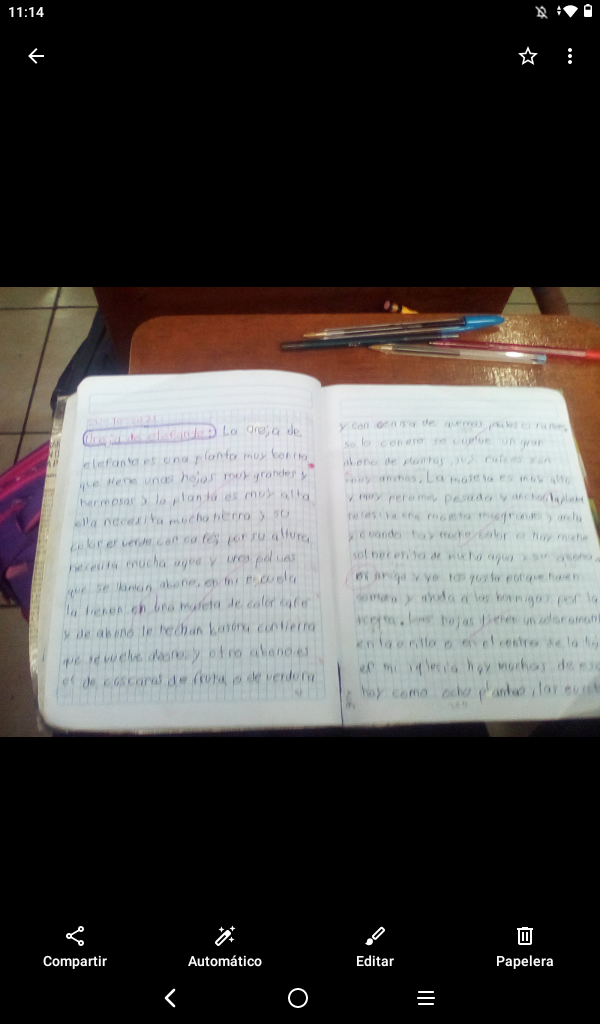 11:14
Oreja de elefante: La oreja de
elefante es una planta muy bonita
que tiene unas hojas muy grandes y
hermosas y la planta es muy alta
ella necesita mucha tierra y su
color es verde con café, por su altura
necesita mucha agua y unos polvos
que se llaman abono, en mi escuela
la tienen en una maseta de color café
y de abono le hechan basura con tierra
que se vuelve abono, y otro abono es
el de cascaras de fruta o de verdura
y con ceniza de quemar palos o ramas
so la ceniza se vuelve un gran
abono de plantas, sus raíces son
muy anchas. La maseta es muy alta
y muy pesada y ancha la planta
nececita una maseta mas grande y ancha
y cuando hay mucho calor o hay mucho
sol necesita de mucha agua y su abono
mi amiga y yo las gusta porque hacen
sombra y ayuda a las hormigas por la
hojas tienen un color amarillo
en la orilla o en el centro de la ho
en mi iglesia hay muchas de esa
hay como ocho plantas, las
Compartir
Automático
Editar
Papelera